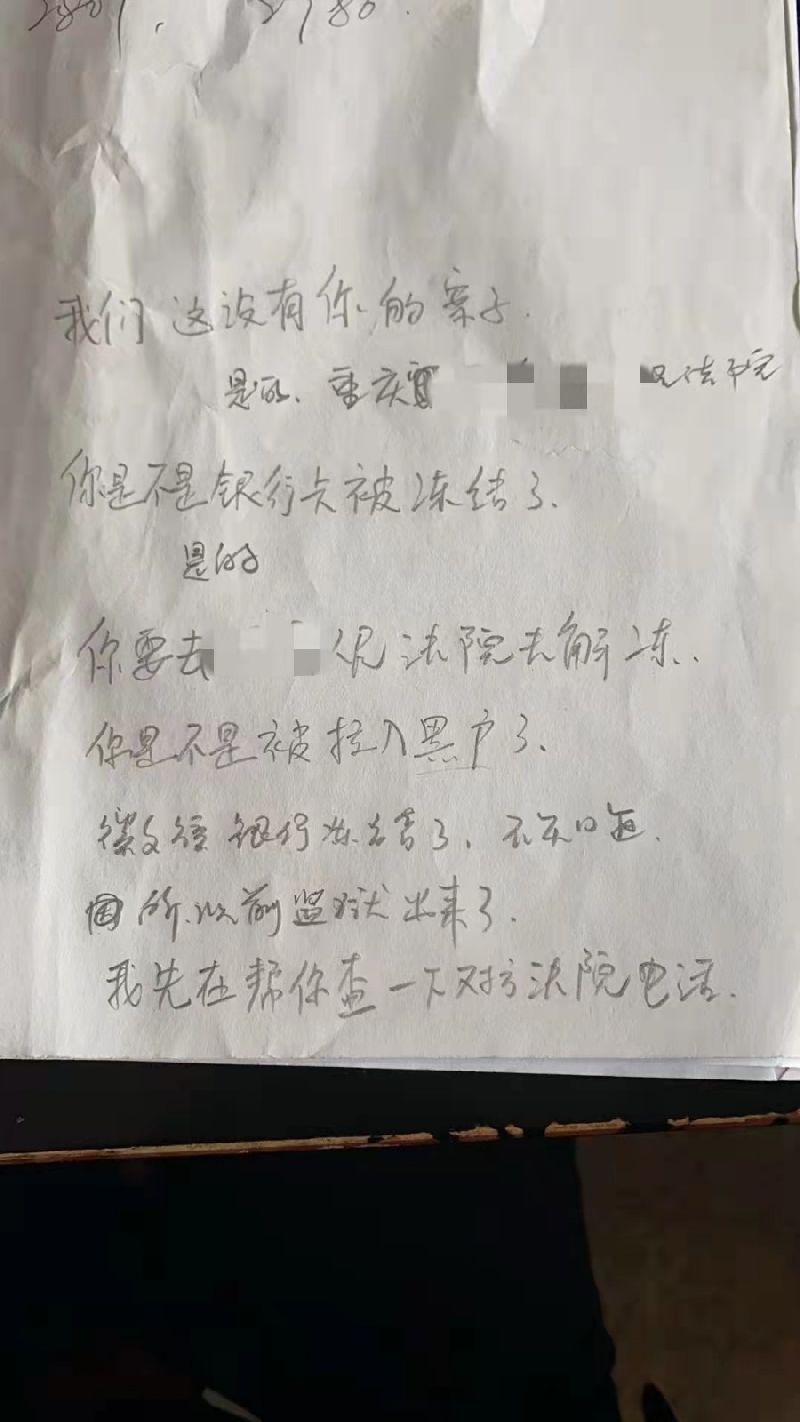 我们这没有你的案子.
是的. 重庆 法院
你是不是银行卡被冻结了.
是的
你要去 法院去解冻.
你是不是被拉入黑户了.
银行冻结了.
所以前监狱出来了.
我先在帮你查一下对方法院电话.